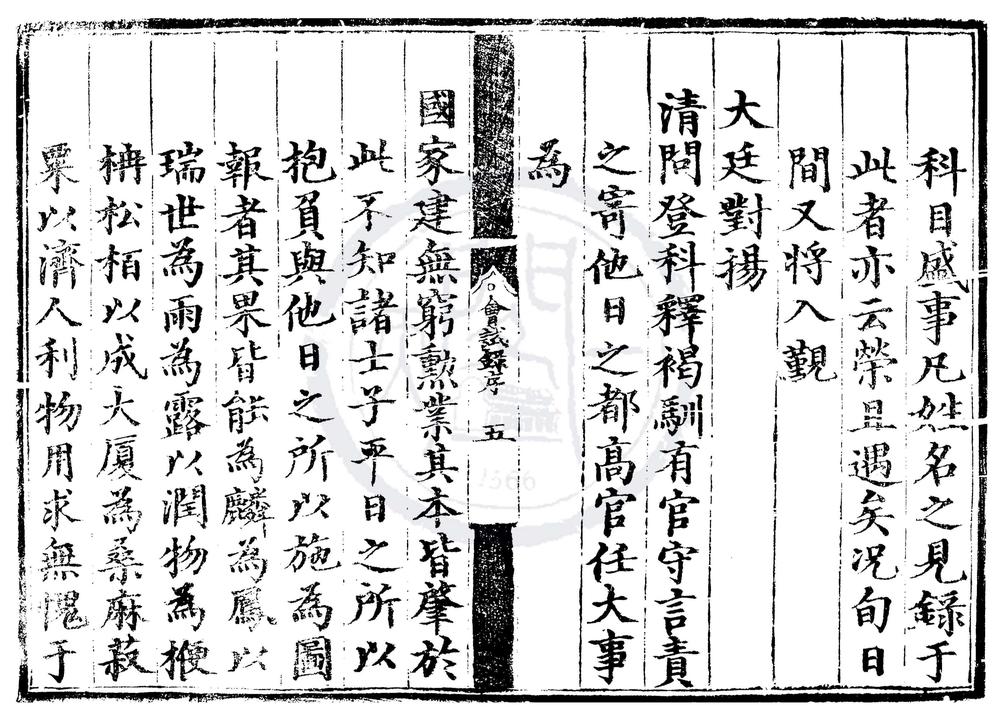 科目盛事凡姓名之見録于
此者亦云榮且遇矣况旬日
間又将入覲
大廷對揚
清問登科釋褐馴有官守言責
之寄他日之都髙官任大事
為
會試録序 五
國家建無窮勲業其本皆肇於
此不知諸士子平日之所以
抱負與他日之所以施為圖
報者其果皆能為麟為鳳以
瑞世為雨為露以潤物為楩
柟松栢以成大厦為桑麻菽
粟以濟人利物用求無愧于
1566